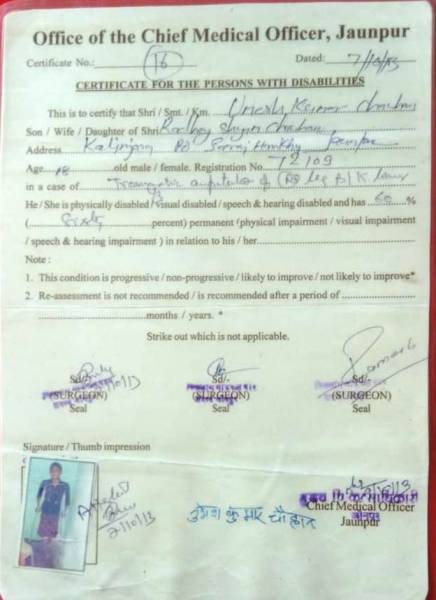 Office of the Chief Medical Officer, Jaunpur
Certificate No.: 16 Dated: 7/10/13
CERTIFICATE FOR THE PERSONS WITH DISABILITIES
This is to certify that Shri / Smt. / Km. Umesh Kumar Chauhan
Son / Wife / Daughter of Shri Radhey Shyam Chauhan
Address
Age 18 old male / female. Registration No. 72109
in a case of Traumatic amputation of (Rt) leg B/K
He / She is physically disabled / visual disabled / speech & hearing disabled and has 60 %
(Sixty percent) permanent / physical impairment / visual impairment
/ speech & hearing impairment ) in relation to his / her
Note :
1. This condition is progressive / non-progressive / likely to improve / not likely to improve*
2. Re-assessment is not recommended / is recommended after a period of
months / years. *
Strike out which is not applicable.
Sd/- Sd/- Sd/-
(SURGEON) (SURGEON) (SURGEON)
Seal Seal Seal
Signature / Thumb impression
Attested
7/10/13
उमेश कुमार चौहान
Chief Medical Officer
जौनपुर
Jaunpur